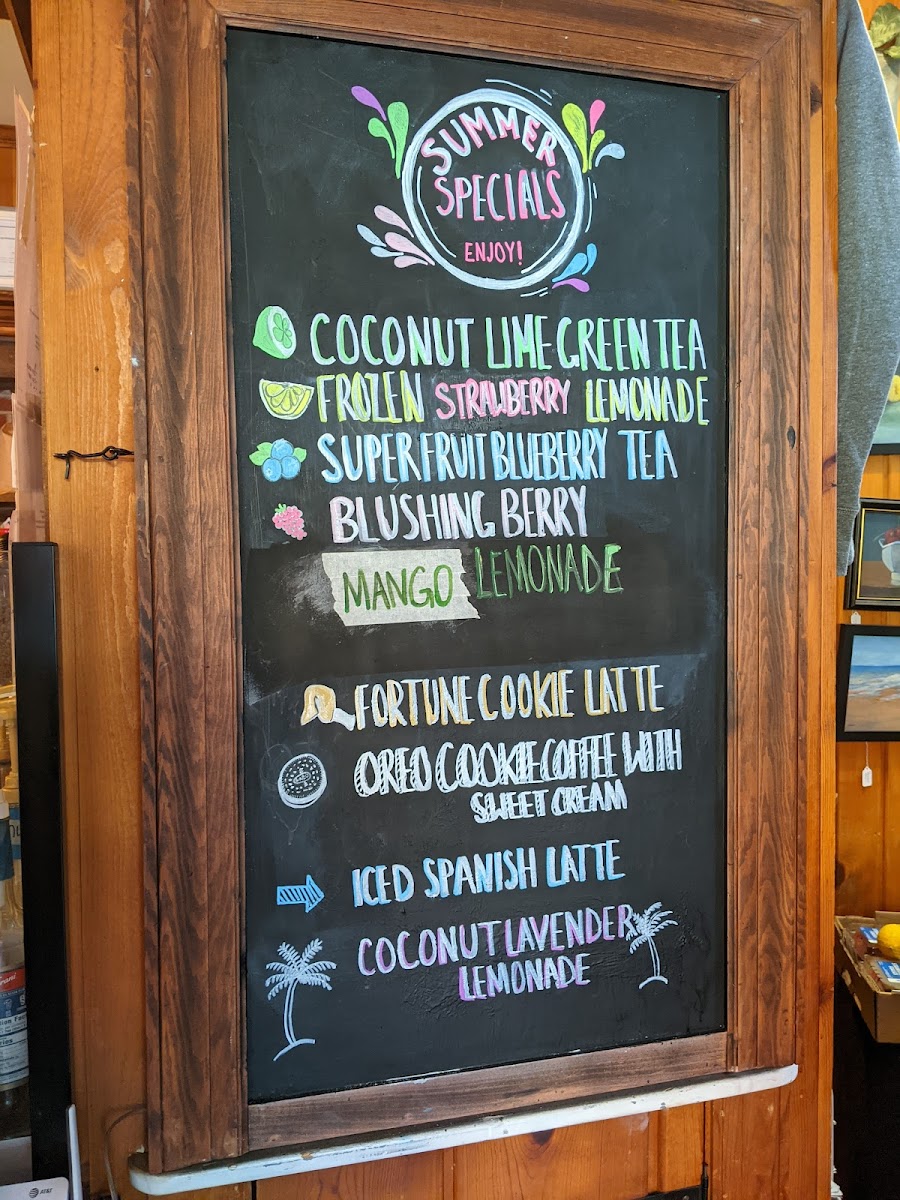 SUMMER
SPECIALS
ENJOY!
COCONUT LIME GREEN TEA
FROZEN STRAWBERRY LEMONADE
SUPERFRUIT BLUEBERRY TEA
BLUSHING BERRY
MANGO LEMONADE
FORTUNE COOKIE LATTE
OREO COOKIE COFFEE WITH
SWEET CREAM
ICED SPANISH LATTE
COCONUT LAVENDER
LEMONADE
AT&T